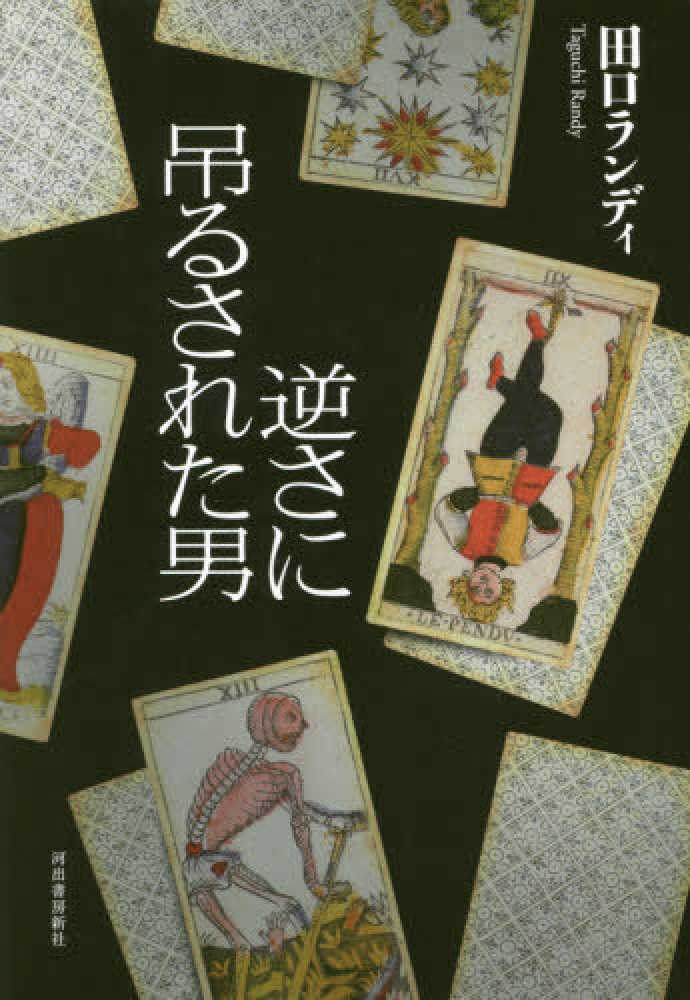 田口ランディ
Taguchi Randy
逆さに
吊るされた男
XVII
XII
LE·PENDV·
XIIII
XIII
河出書房新社